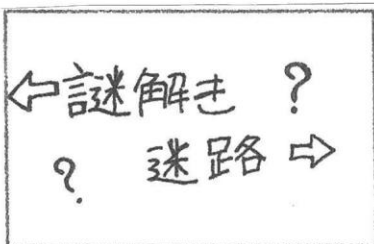 ⇦謎解き ?
? 迷路 ⇨